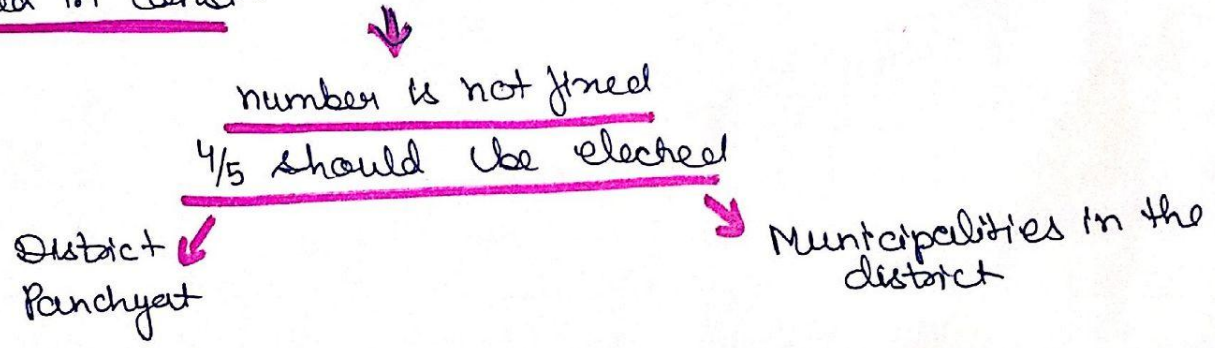 number is not fixed
4/5 should be elected
District
Panchyat
Municipalities in the
district